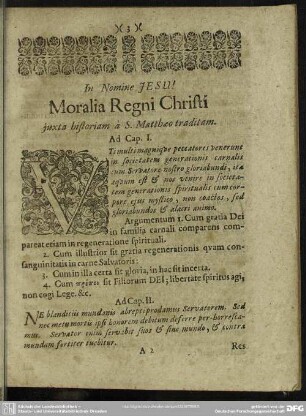 )( 3 )(
In Nomine JESU!
Moralia Regni Christi
juxta historiam à S. Matthæo traditam.
Ad Cap. I.
VTi multi magnique peccatores venerunt
in societatem generationis carnalis
cum Servatore nostro gloriabundi, ita
æquum est & nos venire in societa-
tem generationis spiritualis cum cor-
pore ejus mystico, non coactos, sed
gloriabundos & alacri animo.
Argumentum 1. Cum gratia Dei
in familia carnali comparens com-
pareat etiam in regeneratione spirituali.
2. Cum illustrior sit gratia regenerationis qvam con-
sangvinitatis in carne Salvatoris:
3. Cum in illa certa sit gloria, in hac sit incerta.
4. Cum sit Filiorum DEI; libertate spiritus agi,
non cogi Lege. &c.
Ad Cap. II.
NE blanditiis mundanis abrepti prodamus Servatorem. Sed
nec metu mortis ipsi honorem debitum deferre per-horresta-
mus. Servator enim servabit suos & sine mundo, & contra
mundum fortiter tuebitur.
A 2
Res